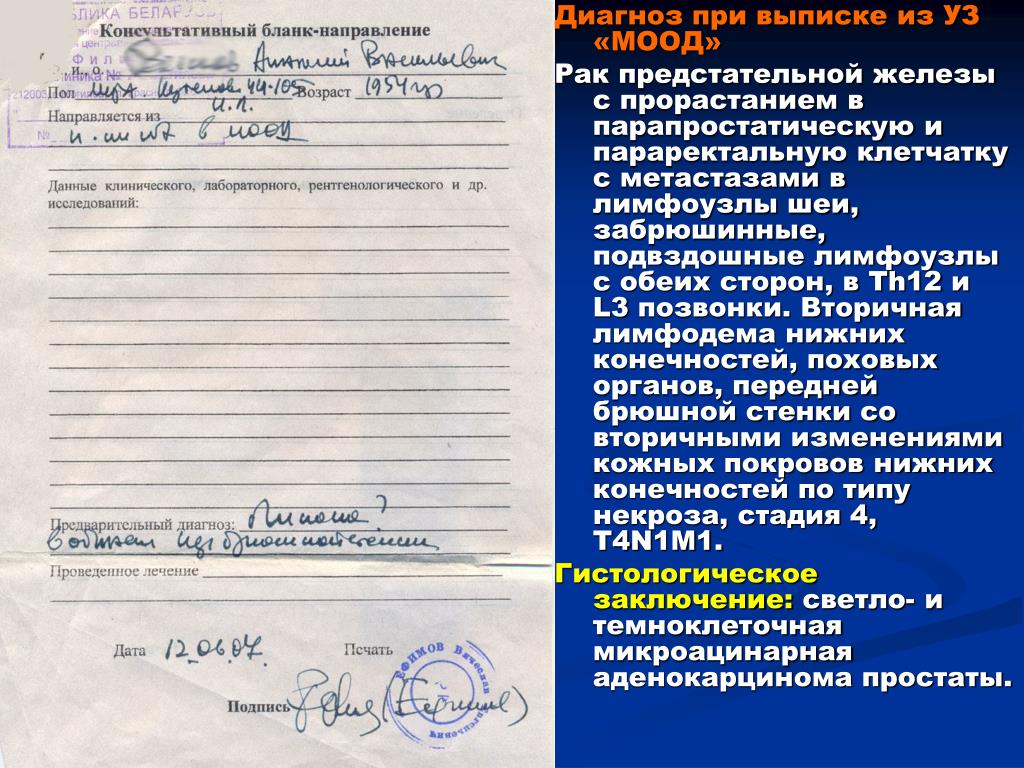 БЛИКА БЕЛАРУСЬ
Консультативный бланк-направление
и., о. Анатолий Васильевич
Пол муж Возраст 1954 гр
Направляется из
в МООД
Данные клинического, лабораторного, рентгенологического и др.
исследований:
Предварительный диагноз: Липома?
в области
Проведенное лечение
Дата 12.06.07. Печать
ЕФИМОВ Вячеслав
Подпись (Ефимов)
Диагноз при выписке из УЗ
«МООД»
Рак предстательной железы
с прорастанием в
парапростатическую и
параректальную клетчатку
с метастазами в
лимфоузлы шеи,
забрюшинные,
подвздошные лимфоузлы
с обеих сторон, в Th12 и
L3 позвонки. Вторичная
лимфодема нижних
конечностей, поховых
органов, передней
брюшной стенки со
вторичными изменениями
кожных покровов нижних
конечностей по типу
некроза, стадия 4,
T4N1M1.
Гистологическое
заключение: светло- и
темноклеточная
микроацинарная
аденокарцинома простаты.